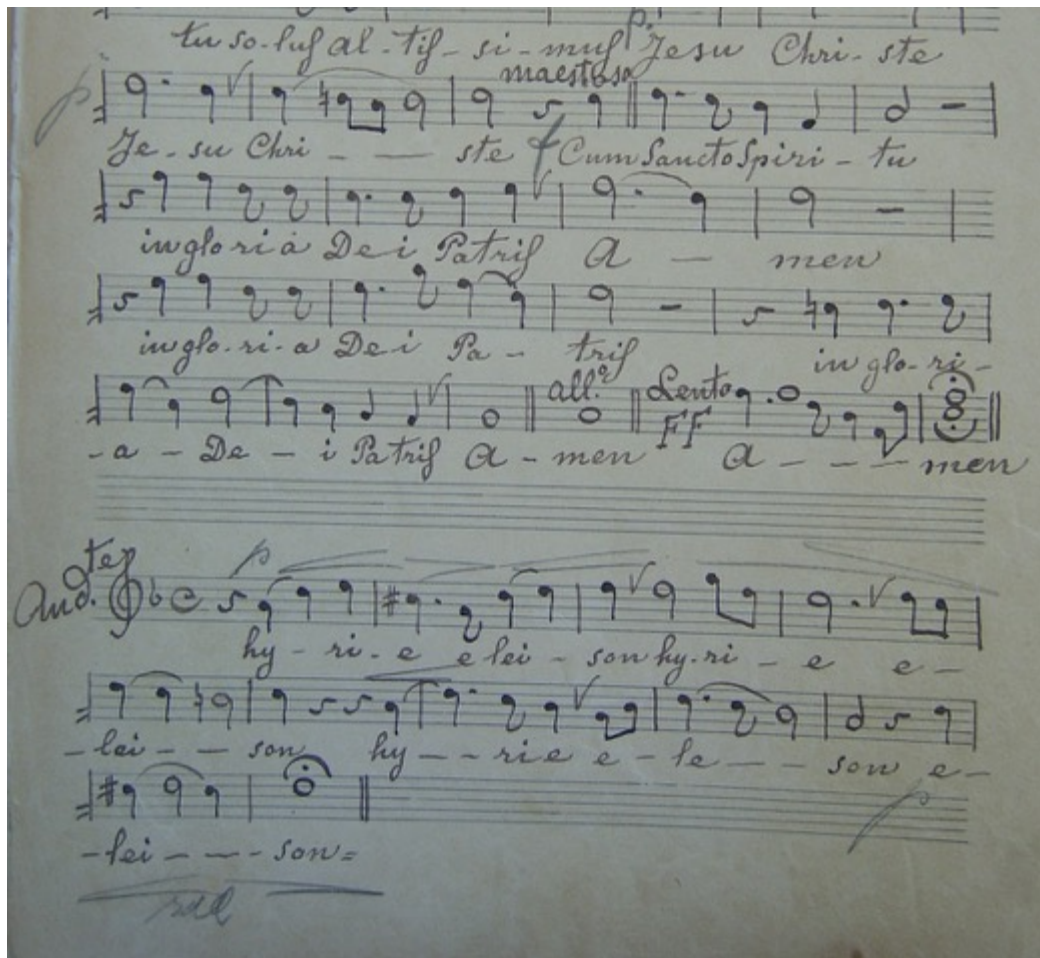 tu so-luſ al-tiſ-si-muſ p. Jesu Chri-ste
maestoso
p
Je-su Chri - — ste f Cum Sancto Spiri-tu
in glo ri a De i Patriſ A — men
in glo-ri-a De-i Pa - triſ in glo-ri-
all.º Lento
FF
-a - De - i Patriſ A-men A - - - men
And.te p
hy-ri-e e lei-son hy-ri-e e-
-lei - - son hy - - rie e-le - - son e-
-lei - - - son=